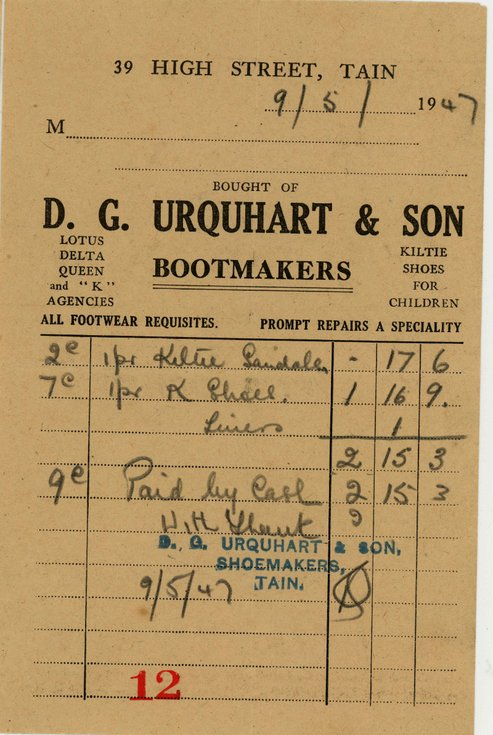 39 HIGH STREET, TAIN
9/5/1947
M
BOUGHT OF
D. G. URQUHART & SON
LOTUS
DELTA
QUEEN
and "K"
AGENCIES
BOOTMAKERS
KILTIE
SHOES
FOR
CHILDREN
ALL FOOTWEAR REQUISITES. PROMPT REPAIRS A SPECIALITY
2e 1pr Kiltie Sandals - 17 6
7e 1pr K Shoes. 1 16 9.
1
2 15 3
9e Paid by Cash 2 15 3
W.H.
D. G. URQUHART & SON,
SHOEMAKERS,
TAIN.
9/5/47
12